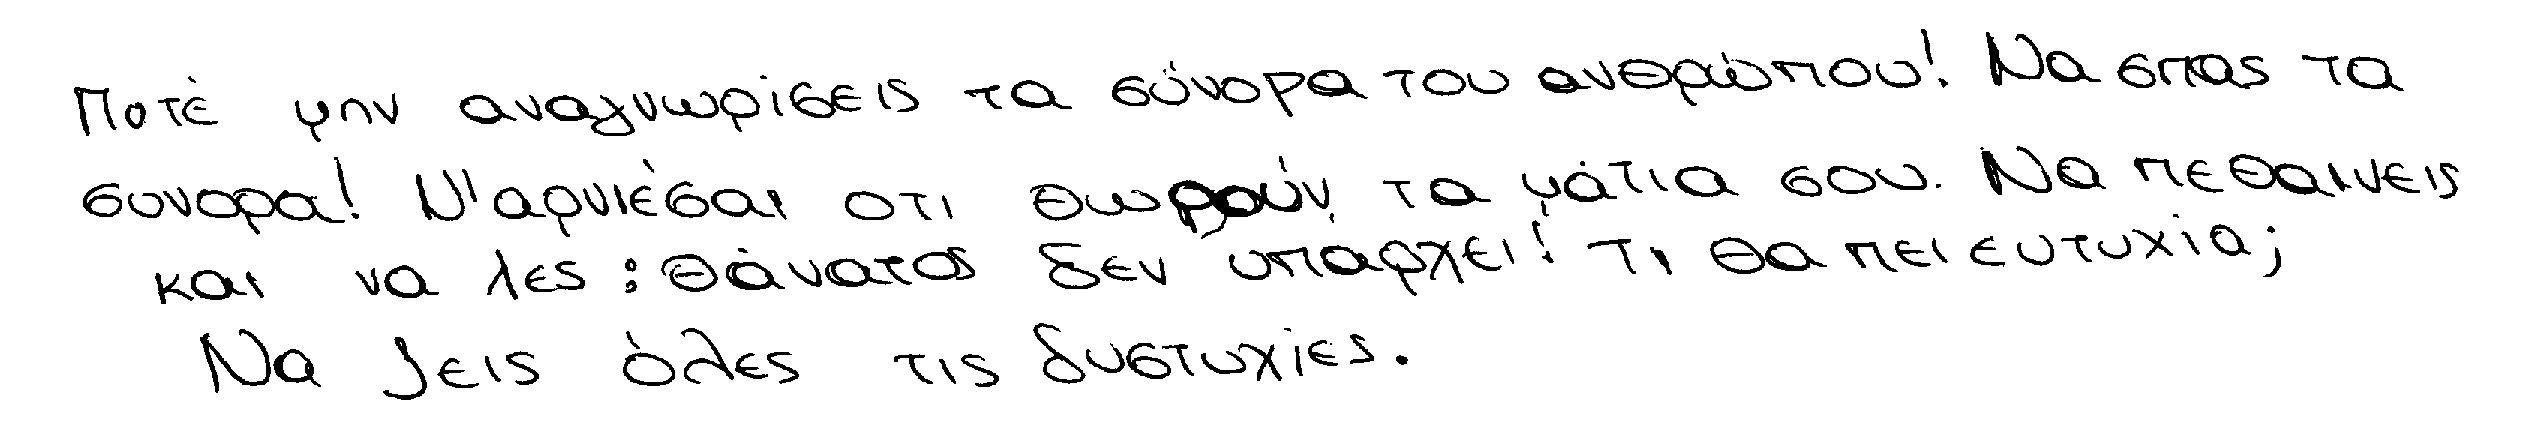 Ποτέ μην αναγνωρίσεις τα σύνορα του ανθρώπου! Να σπας τα
συνορα! Ν'αρνιέσαι οτι θωρούν τα μάτια σου. Να πεθαινεις
και να λες : θάνατος δεν υπαρχει! Τι θα πει ευτυχία;
Να ζεις όλες τις δυστυχίες.